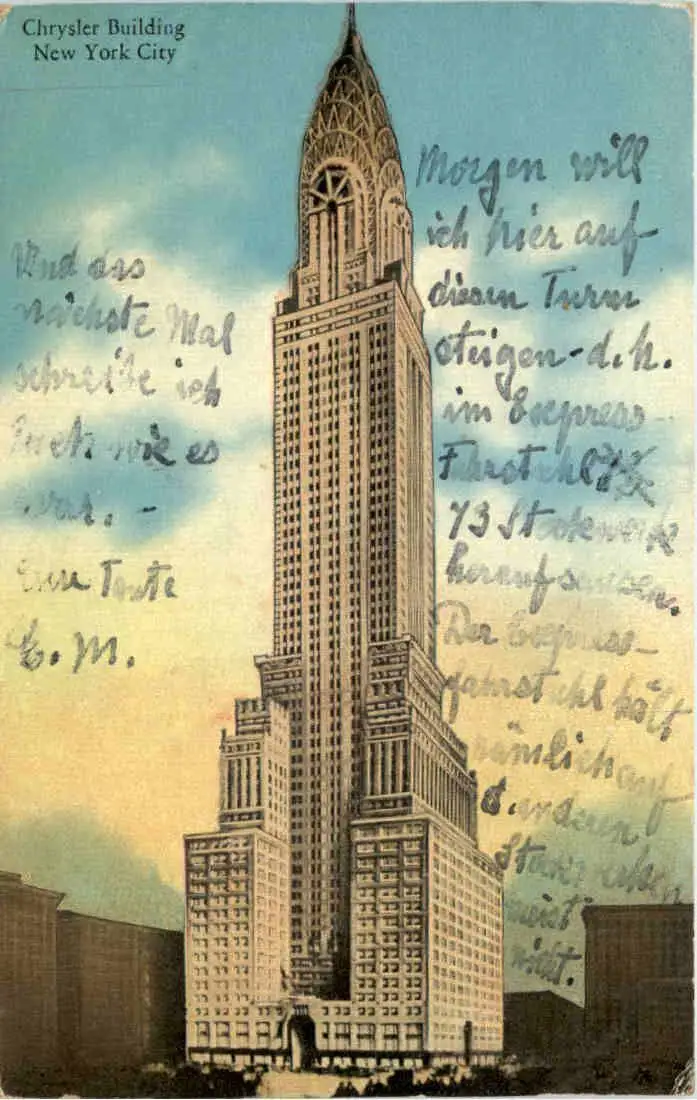 Chrysler Building
New York City
Morgen will
ich hier auf
diesen Turm
steigen - d.h.
im Express-
Fahrstuhl
73 Stockwerk
heraufsausen.
Der Express-
fahrstuhl hält
nämlich auf
d. anderen
meist
nicht.
Und das
nächste Mal
schreibe ich
Euch wie es
war. -
Eure Tante
E. M.